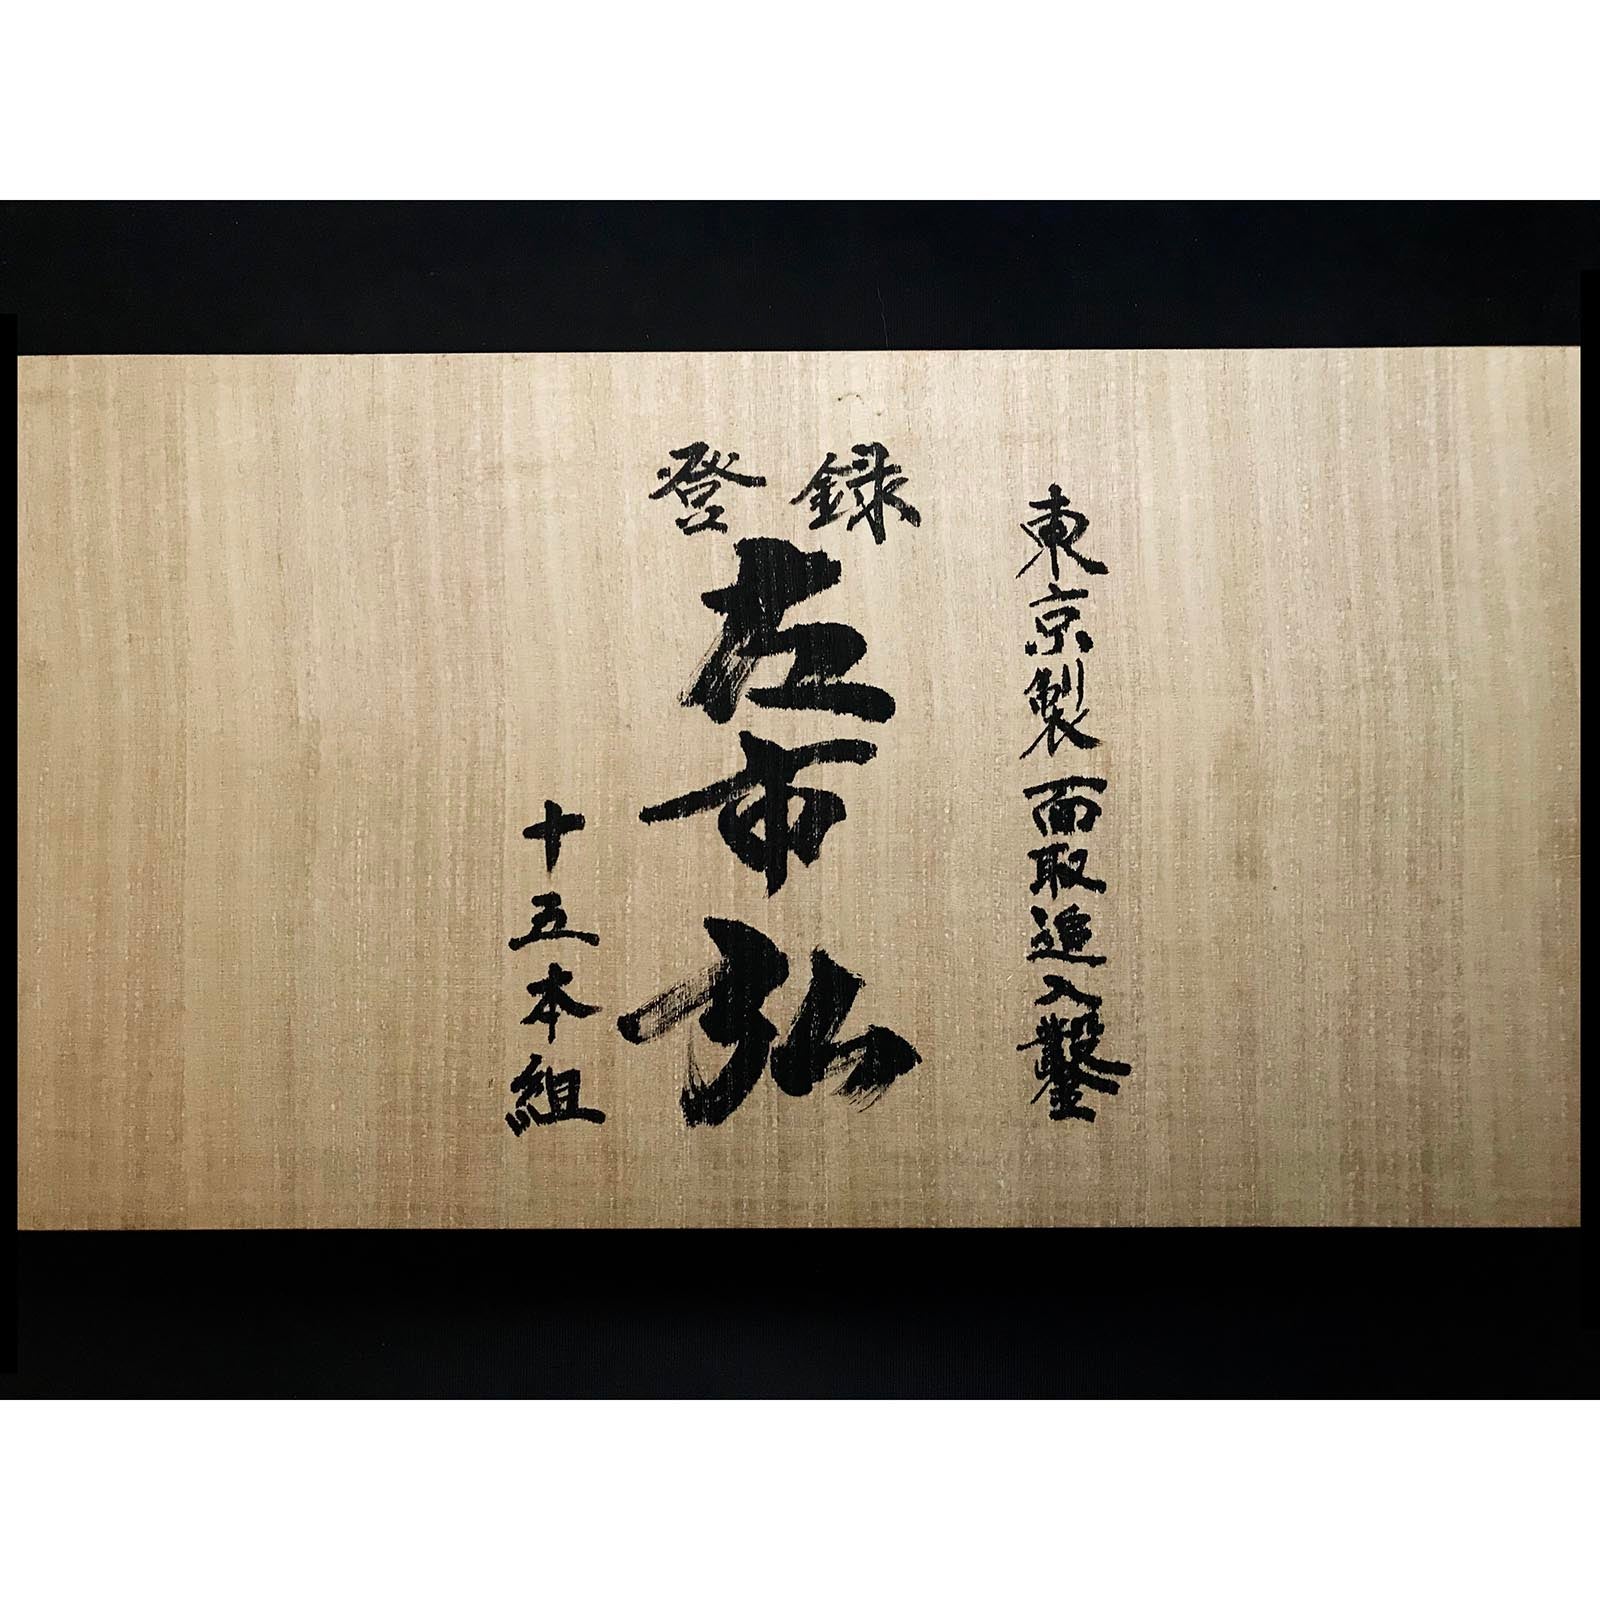 東京製面取追入鑿
登録
左市弘
十五本組